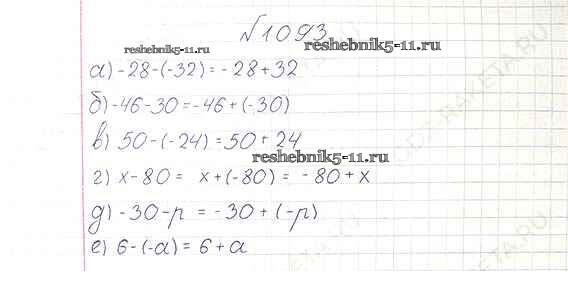 №1093
reshebnik5-11.ru
reshebnik5-11.ru
а) -28-(-32)=-28+32
б) -46-30=-46+(-30)
в) 50-(-24)=50+24
reshebnik5-11.ru
г) x-80= x+(-80)= -80+x
д) -30-p = -30+(-p)
е) 6-(-a)=6+a